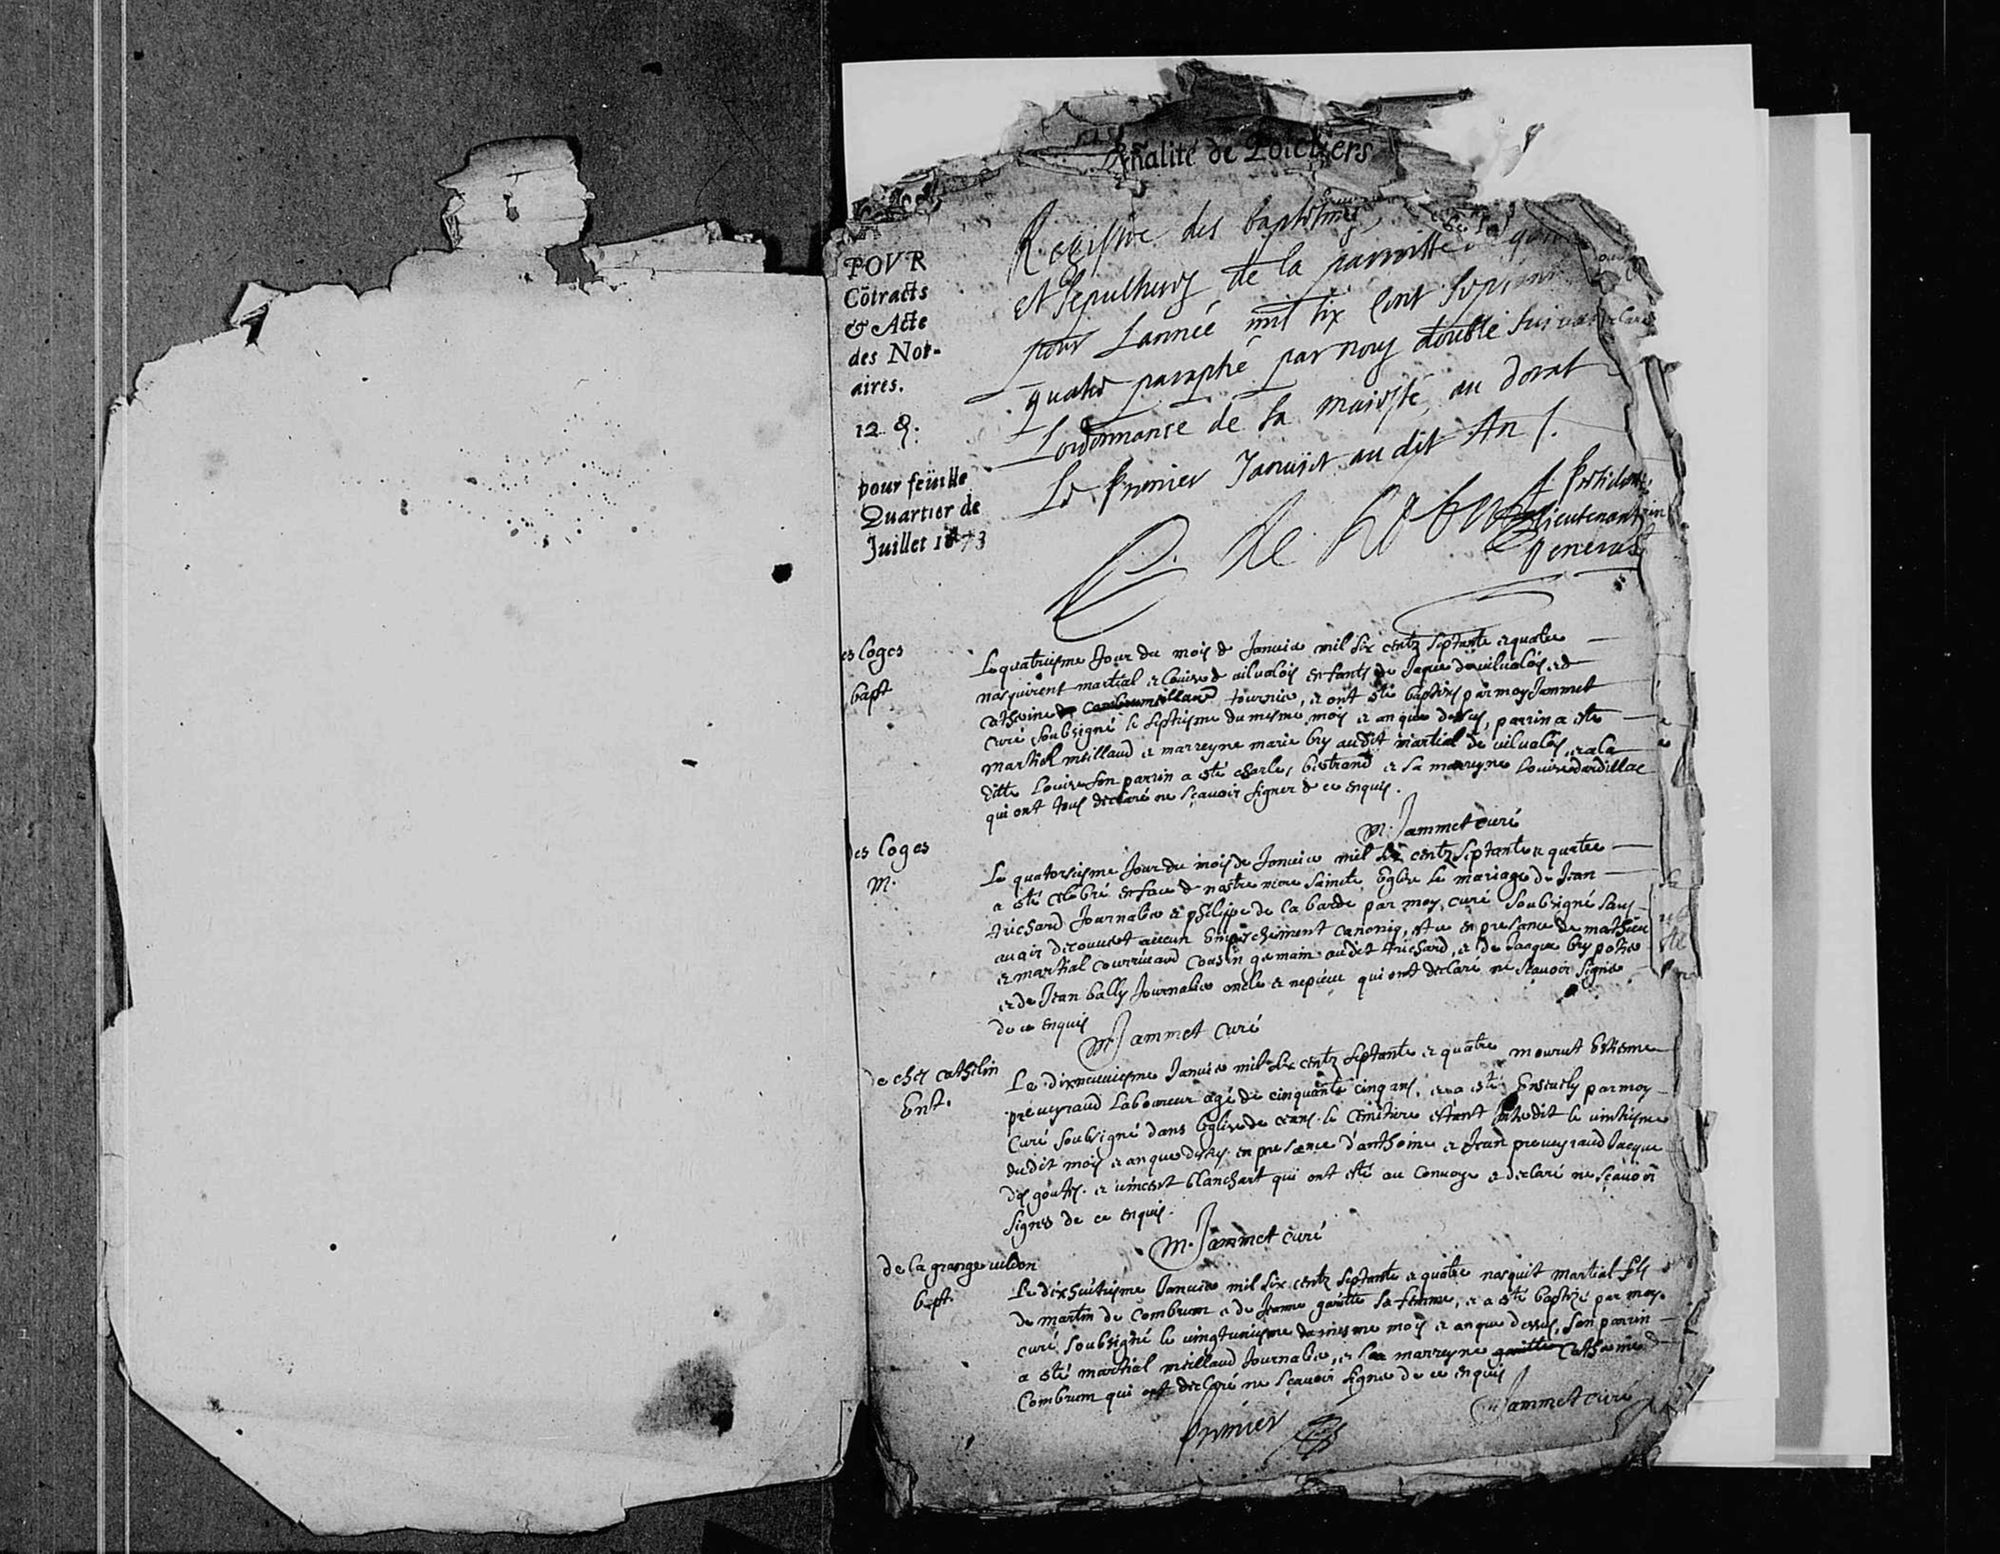 nalité de Poictiers
POVR
Cõtracts
& Acte
des Not-
aires.
12 
pour feüille
Quartier de
Juillet 1673
Registre des baptesmes
et sepultures de la parroisse
pour Lannée mil six cent septante
quatre paraphé par nous double suivant
Lordonnance de sa maiesté, au dorat
Le premier Januier au dit An
President
Lieutenant
General
es loges
bapt
Le quatriesme Jour du mois de Januier mil six centz septante et quatre
nasquirent martial et louise de vilvaleis enfants de Jaque de vilvaleis et de
Catherine tournier, et ont esté baptisés par moy Jammet
curé soubsigné le septiesme du mesme mois et an que dessus, parrin a esté
martial meillaud et marreyne marie bry audit martial de vilvaleis, et a la
ditte Louise son parrin a esté charles bertrand et sa marreyne Louise dardillac
qui ont tous declaré ne sçauoir signer de ce enquis.
M. Jammet curé
es loges
M.
Le quatorsiesme Jour du mois de Januier mil six centz septante et quatre
a esté celebré en face de nostre mere saincte Eglise le mariage de Jean
trichard Journalier et phelippe de la barde par moy curé soubsigné sans
auoir decouuert aucun Empeschement canoniq, et ce en presance de mathieu
et martial courrivaud cousin germain audit trichard, et de Jacque bry potier
et de Jean bally Journalier oncle et nepveu qui ont declaré ne sçauoir signer
de ce enquis
M. Jammet curé
de chez cathelin
Ent.
Le dixneuuiesme Januier mil six centz septante et quatre mourut Estienne
preueyraud Laboureur agé de cinquante cinq ans, et a esté Enseuely par moy
curé soubsigné dans leglise de ceans le Cemitiere estant Interdit le vintiesme
dudit mois et an que dessus en presance d'anthoine et Jean preueyraud Jacque
des gouttes et vincent blanchart qui ont esté au conuoye et declaré ne sçauoir
signer de ce enquis.
M. Jammet curé
de la grange vildon
bapt.
Le dixhuitiesme Januier mil six centz septante et quatre nasquit martial fils
de martin de Combrum et de Jeanne gaultte sa femme, et a esté baptizé par moy
curé soubsigné le vingtuniesme du mesme mois et an que dessus, son parrin
a esté martial meillaud Journalier, et sa marreyne Catherine de
Combrum qui ont declaré ne sçauoir signer de ce enquis
M. Jammet curé
premier